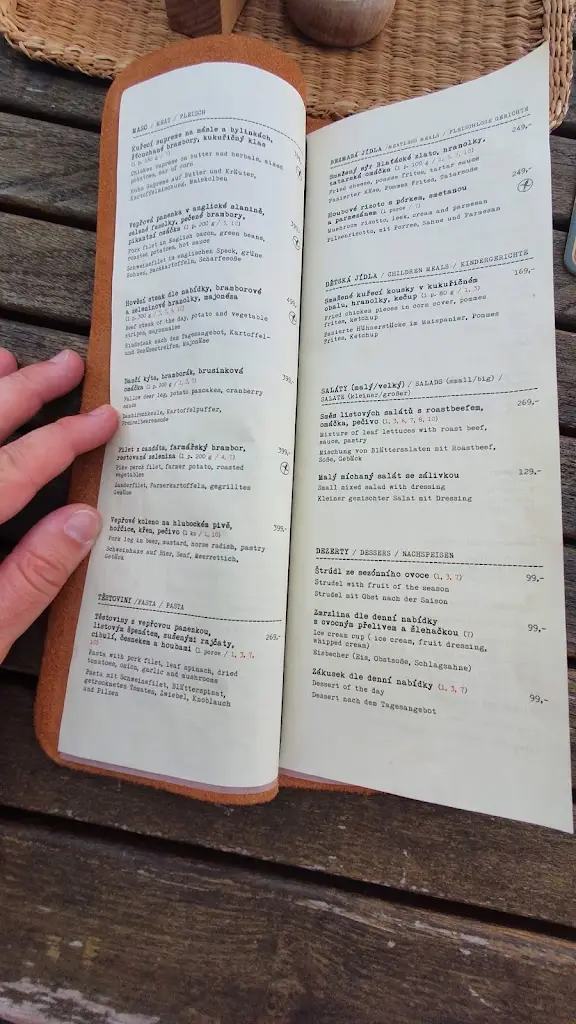 MASO / MEAT / FLEISCH
Kuřecí supreme na másle a bylinkách,
šťouchané brambory, kukuřičný klas
Chicken Supreme on butter and herbals, mixed
potatoes, ear of corn
Huhn Supreme auf Butter und Kräuter,
Kartoffelmischung, Maiskolben
Vepřová panenka v anglické slanině,
zelené fazolky, pečené brambory,
pikantní omáčka (1 p. 200 g / 5, 10)
Pork filet in English bacon, green beans,
roasted potatoes, hot sauce
Schweinsfilet in englischen Speck, grüne
Bohnen, Backkartoffeln, Scharfesoße
Hovězí steak dle nabídky, bramborové
a zelenicové hranolky, majonéza
Beef steak of the day, potato and vegetable
stripes, mayonnaise
Rindsteak nach dem Tagesangebot, Kartoffel-
und Gemüsetreifen, Majonäse
Dančí kýta, bramborák, brusinková
omáčka (1 p. 200 g / 1, 3, 7)
399,-
Fallow deer leg, potato pancakes, cranberry
sauce
Damhirschkeule, Kartoffelpuffer,
Preiselbeerensoße
Filet z candáta, farmářský brambor,
restovaná zelenina (1 p. 200 g / 4, 7)
399,-
Pike perch filet, farmer potato, roasted
vegetables
Zanderfilet, Farmerkartoffeln, gegrilltes
Gemüse
Vepřové koleno na hlubockém pivě,
hořčice, křen, pečivo (1 ks / 1, 10)
399,-
Pork leg in beer, mustard, horse radish, pastry
Schweinhaxe auf Bier, Senf, Meerrettich,
Gebäck
TĚSTOVINY /PASTA / PASTA
Těstoviny s vepřovou panenkou,
listovým špenátem, sušenými rajčaty,
cibulí, česnekem a houbami (1 porce / 1, 3, 7,
10)
269,-
Pasta with pork filet, leaf spinach, dried
tomatoes, onion, garlic and mushrooms
Pasta mit Schweinsfilet, Blätterspinat,
getrocknetes Tomaten, Zwiebel, Knoblauch
and Pilzen
BEZMASÁ JÍDLA /MEATLESS MEALS / FLEISCHLOSE GERICHTE
Smažený sýr Blaťácké zlato, hranolky,
tatarská omáčka (1 p. 100 g / 1, 3, 7, 10)
249,-
Fried cheese, pommes frites, tartar sauce
Panierter Käse, Pommes Frites, Tatarsoße
Houbové rizoto s pórkem, smetanou
a parmezánem (1 porce / 7)
249,-
Mushroom risotto, leek, cream and parmesan
Pilzerisotto, mit Porree, Sahne und Parmesan
DĚTSKÁ JÍDLA / CHILDREN MEALS / KINDERGERICHTE
Smažené kuřecí kousky v kukuřičném
obalu, hranolky, kečup (1 p. 80 g / 1, 3)
169,-
Fried chicken pieces in corn cover, pommes
frites, ketchup
Panierte Hühnerstücke im Maispanier, Pommes
Frites, Ketchup
SALÁTY (malý/velký) / SALADS (small/big) /
SALATE (kleiner/großer)
Směs listových salátů s roastbeefem,
omáčka, pečivo (1, 3, 6, 7, 8, 10)
269,-
Mixture of leaf lettuces with roast beef,
sauce, pastry
Mischung von Blättersalaten mit Roastbeef,
Soße, Gebäck
Malý míchaný salát se zálivkou
129,-
Small mixed salad with dressing
Kleiner gemischter Salat mit Dressing
DEZERTY / DESSERS / NACHSPEISEN
Štrúdl ze sezónního ovoce (1, 3, 7)
99,-
Strudel with fruit of the season
Strudel mit Obst nach der Saison
Zmrzlina dle denní nabídky
s ovocným přelivem a šlehačkou (7)
99,-
Ice cream cup ( ice cream, fruit dressing,
whipped cream)
Eisbecher (Eis, Obstsoße, Schlagsahne)
Zákusek dle denní nabídky (1, 3, 7)
99,-
Dessert of the day
Dessert nach dem Tagesangebot